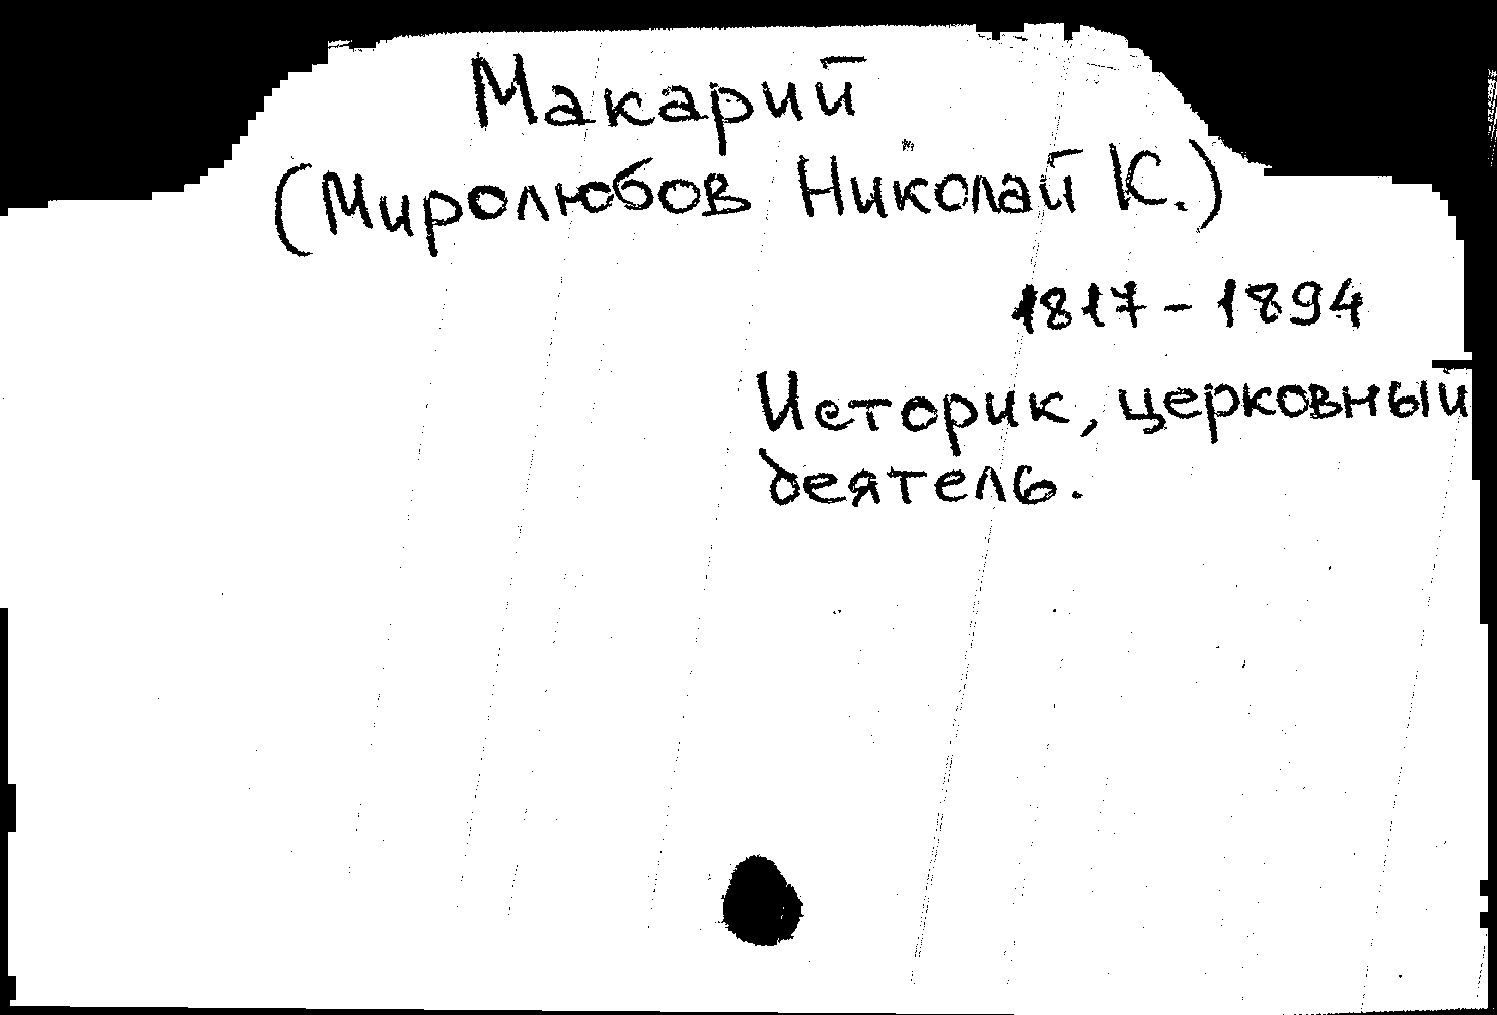 Макарий
(Миролюбов Николай К.)
1817 - 1894
Историк, церковный
деятель.